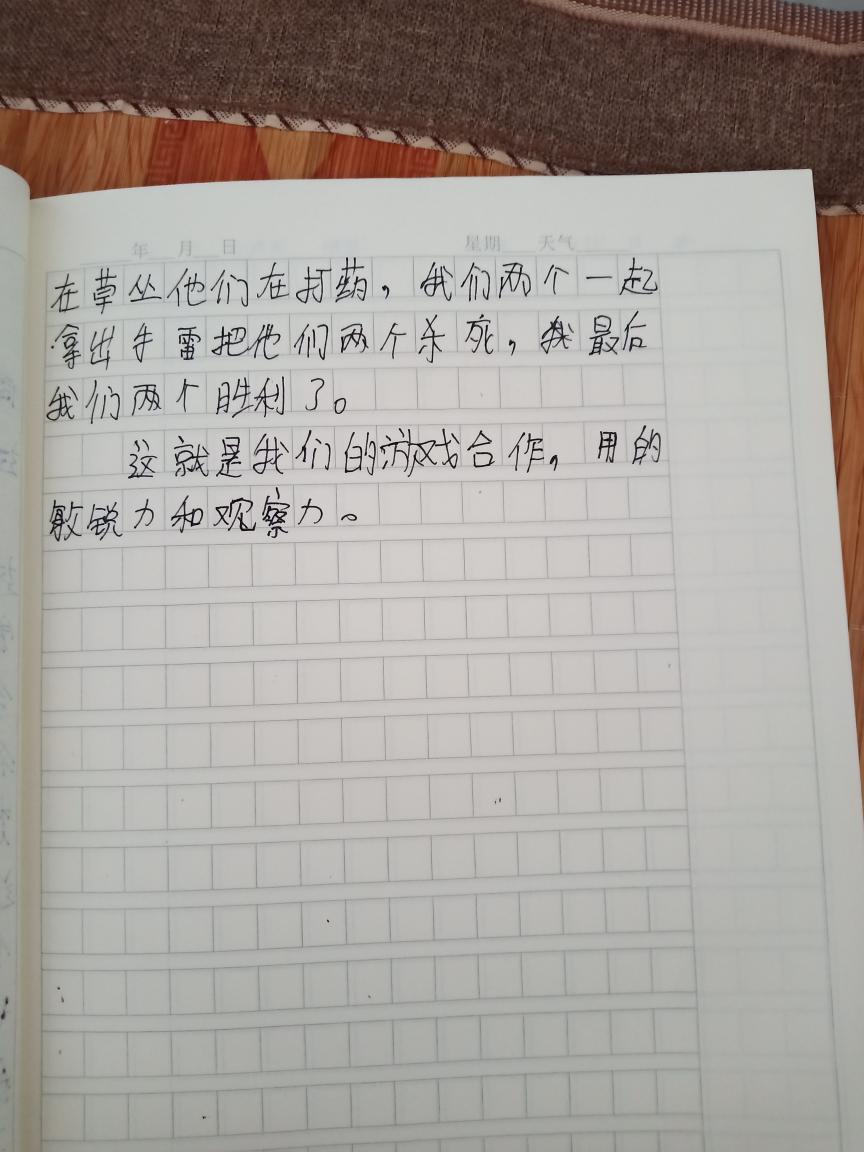 年 月 日 星期 天气
在草丛他们在打药，我们两个一起
拿出手雷把他们两个杀死，我最后
我们两个胜利了。
这就是我们的游戏合作，用的
敏锐力和观察力。